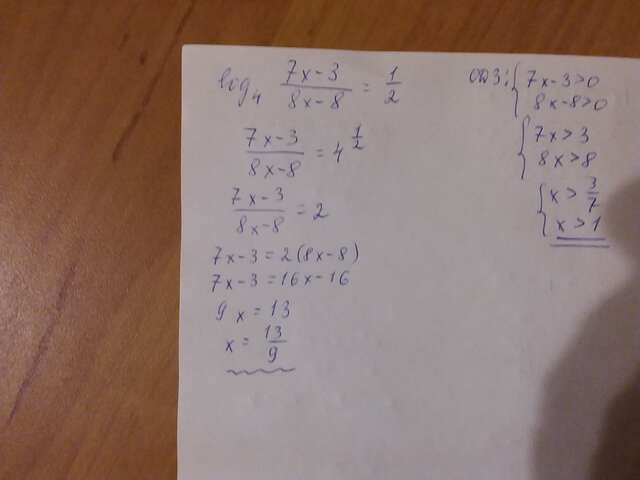 log₄ (7x-3)/(8x-8) = 1/2
(7x-3)/(8x-8) = 4^(1/2)
(7x-3)/(8x-8) = 2
7x-3=2(8x-8)
7x-3=16x-16
9x=13
x=13/9
ОДЗ: { 7x-3>0
8x-8>0
{ 7x>3
8x>8
{ x>3/7
x>1